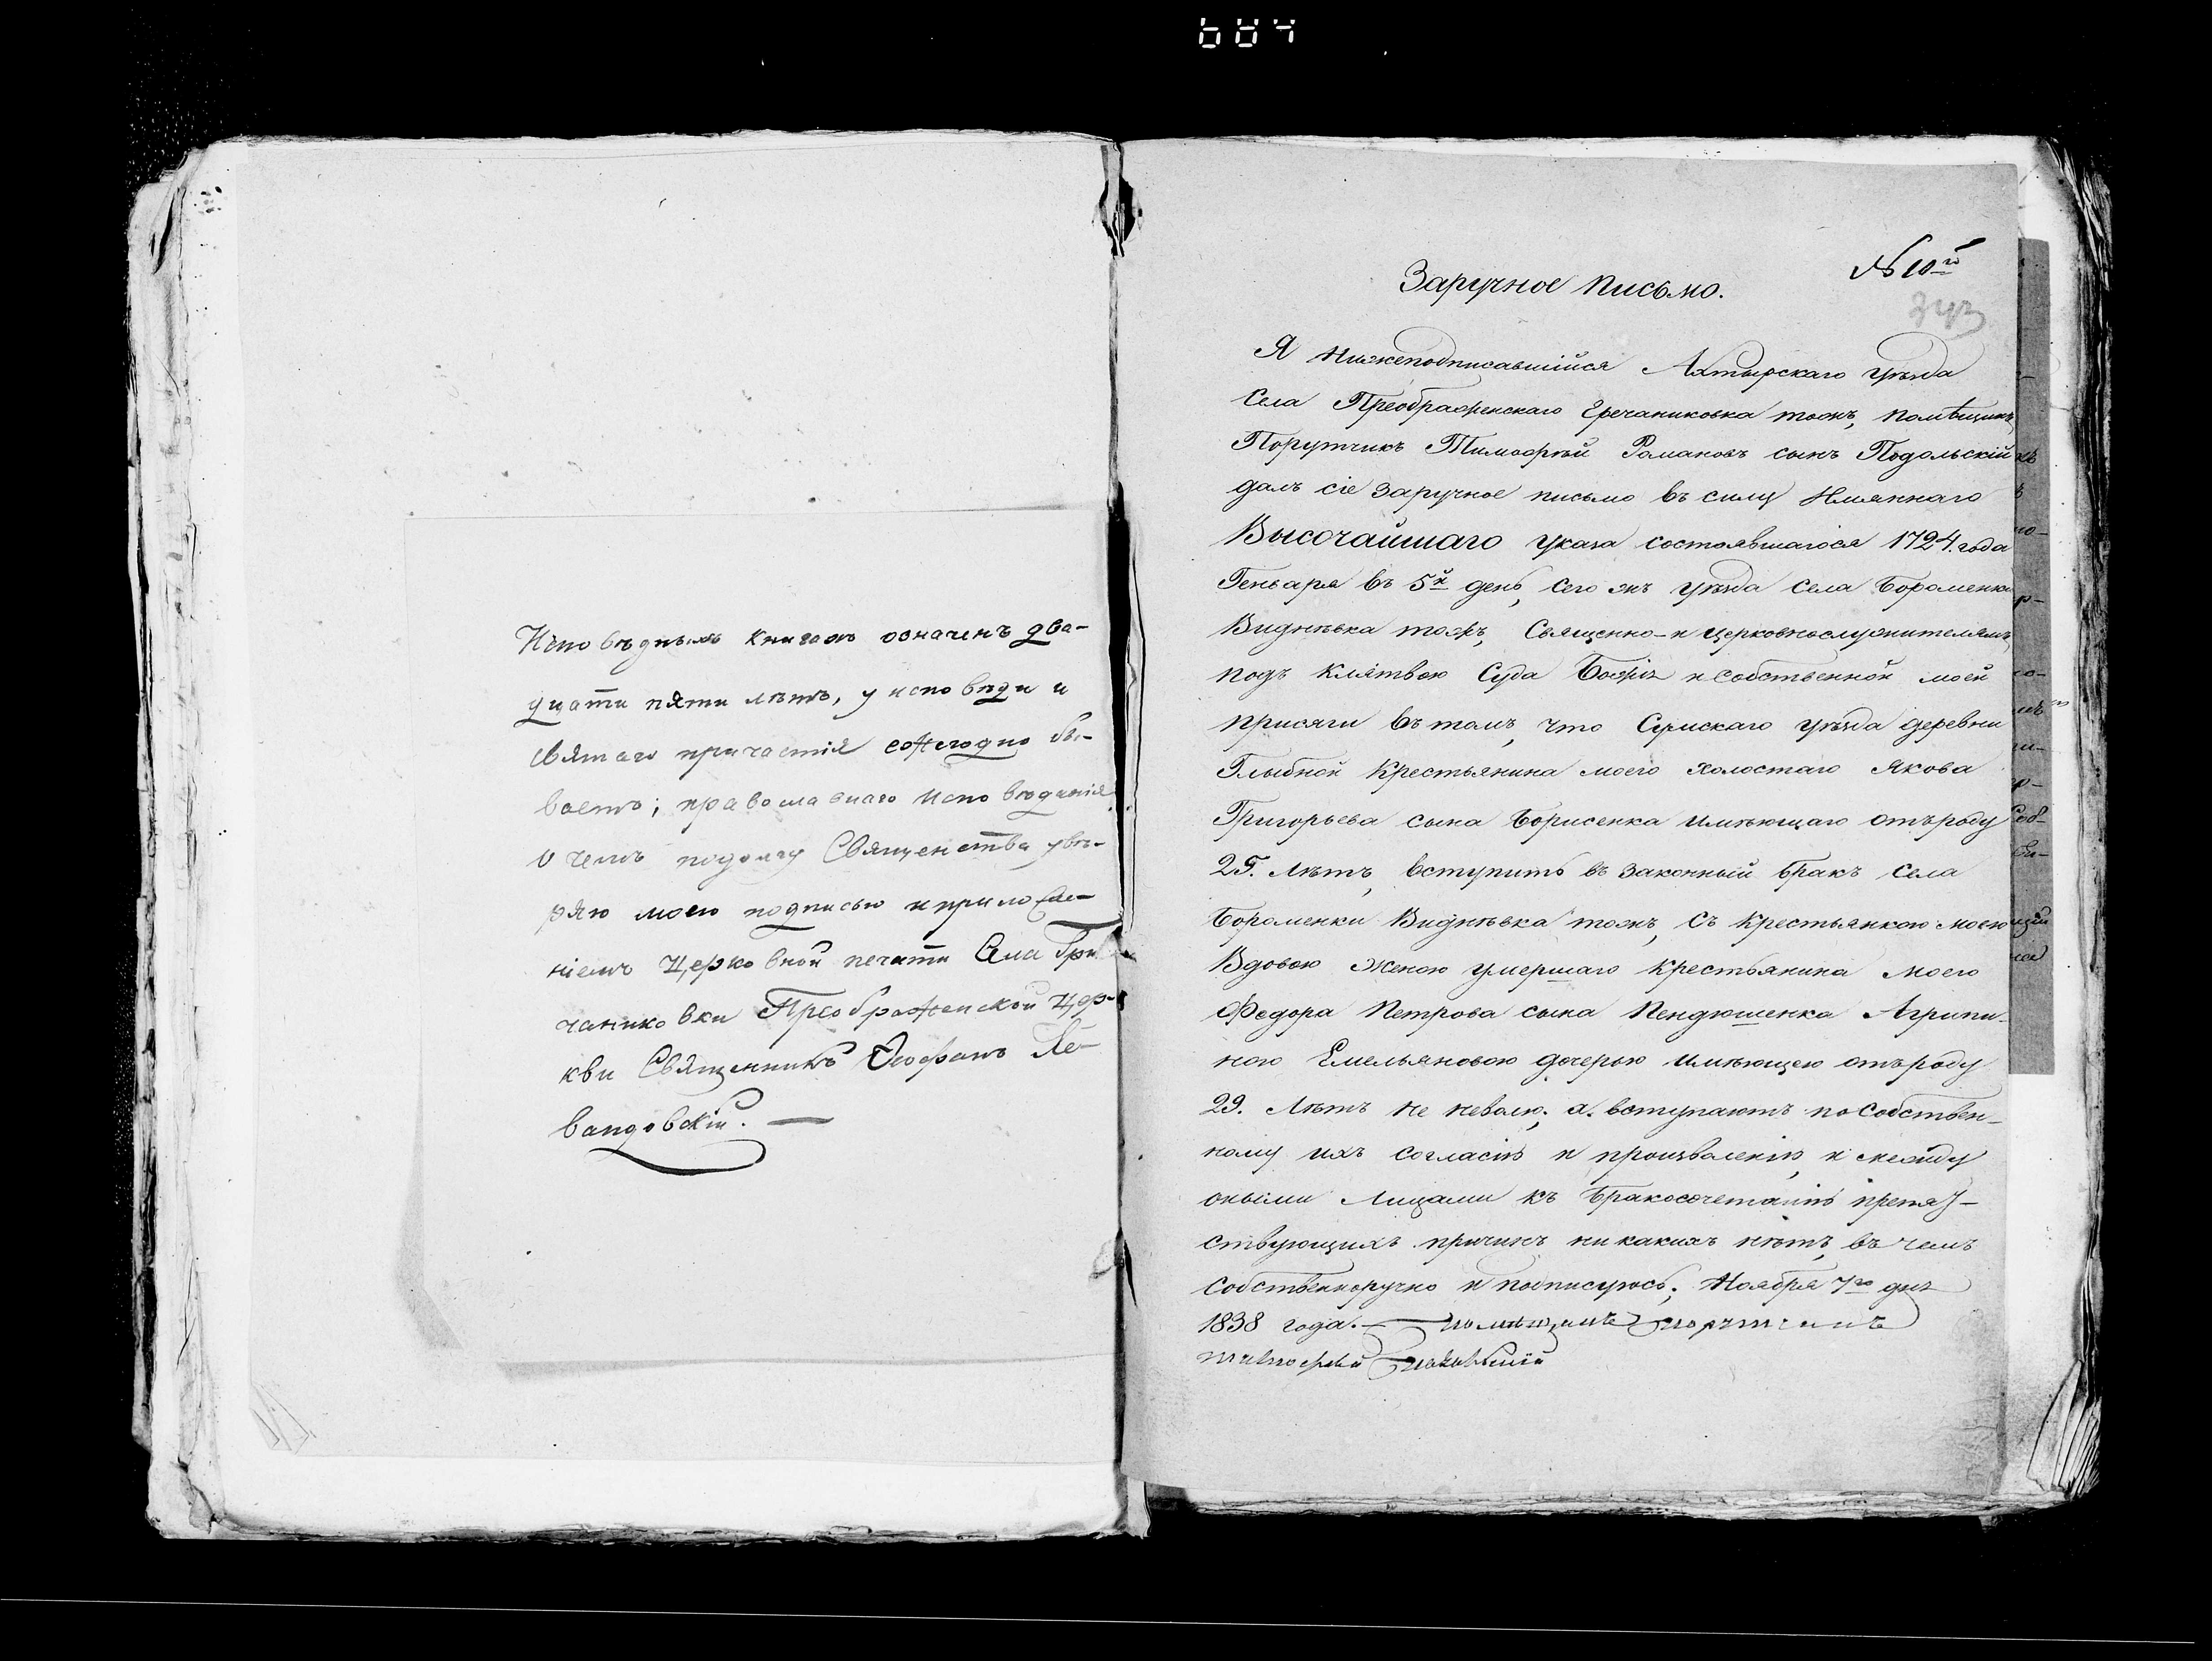 684
Исповѣдныхъ книгахъ означенъ два-
дцати пяти лѣтъ, у исповѣди и
Святаго причастія ежегодно бы-
ваетъ; православнаго исповѣданія
О чемъ по долгу Священства увѣ-
ряю моею подписью и приложе-
ніемъ Церковной печати Села Гри
чаниковки Преображенской Цер-
кви Священникъ Ѳеофанъ Ле-
вандовскій.
№ 10й
Заручное письмо.
Я нижеподписавшійся Ахтырскаго уѣзда
Села Преображенскаго Гречаниковка тожъ, помѣщикъ
Порутчикъ Тимофѣй Романовъ сынъ Подольскій
далъ сіе заручное письмо въ силу Имяннаго
Высочайшаго указа состоявшагося 1724. года
Генваря въ 5й день, сего жъ уѣзда села Бороменки
Виднѣвка тожъ, Священно- и церковнослужителямъ,
подъ клятвою Суда Божія и собственной моей
присяги въ томъ, что Сумскаго уѣзда деревни
Глыбной крестьянина моего холостаго Якова
Григорьева сына Борисенка имѣющаго отъ роду
25. лѣтъ, вступить въ законный бракъ села
Бороменки Виднѣвка тожъ, съ крестьянкою моею
Вдовою женою умершаго крестьянина моего
Федора Петрова сына Пендюшенка Агрипи-
ною Емельяновою дочерью имѣющею отъ роду
29. лѣтъ не неволю; а. вступаютъ по собствен-
ному ихъ согласію и произволенію, и между
оными лицами къ бракосочетанію препят-
ствующихъ причинъ ни какихъ нѣтъ, въ чемъ
собственноручно и подписуюсь; Ноября 7го дня
1838 года. помѣщикъ порутчикъ
тимофѣй